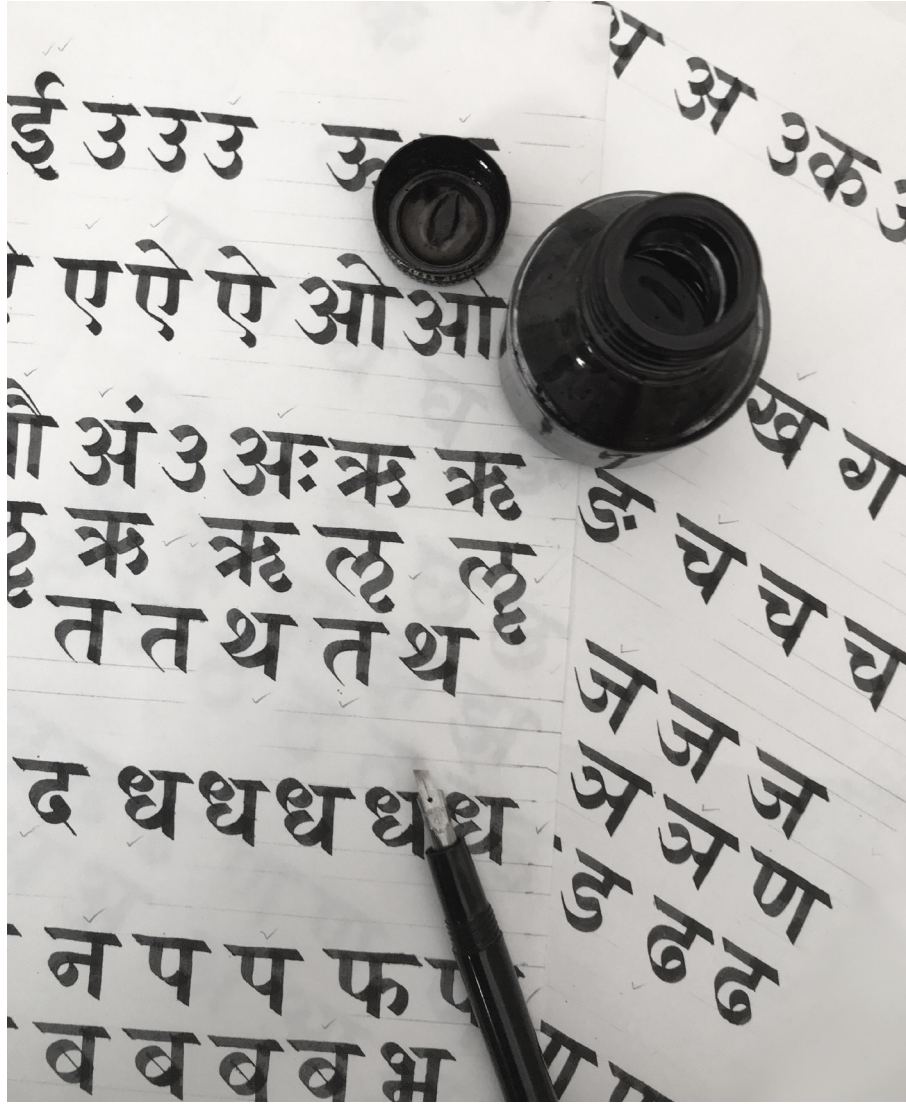 ई उ उ उ ऊ
ए ऐ ऐ ओ ओ
अं उ अः ऋ ऋ
ऋ ॠ ऌ ॡ
त त थ त थ
द ध ध ध ध ध
न प प फ
ब ब ब ब भ
अ उ क
ख ग
ङ च च च
ज ज ज
ञ ञ ण
ड ढ ढ